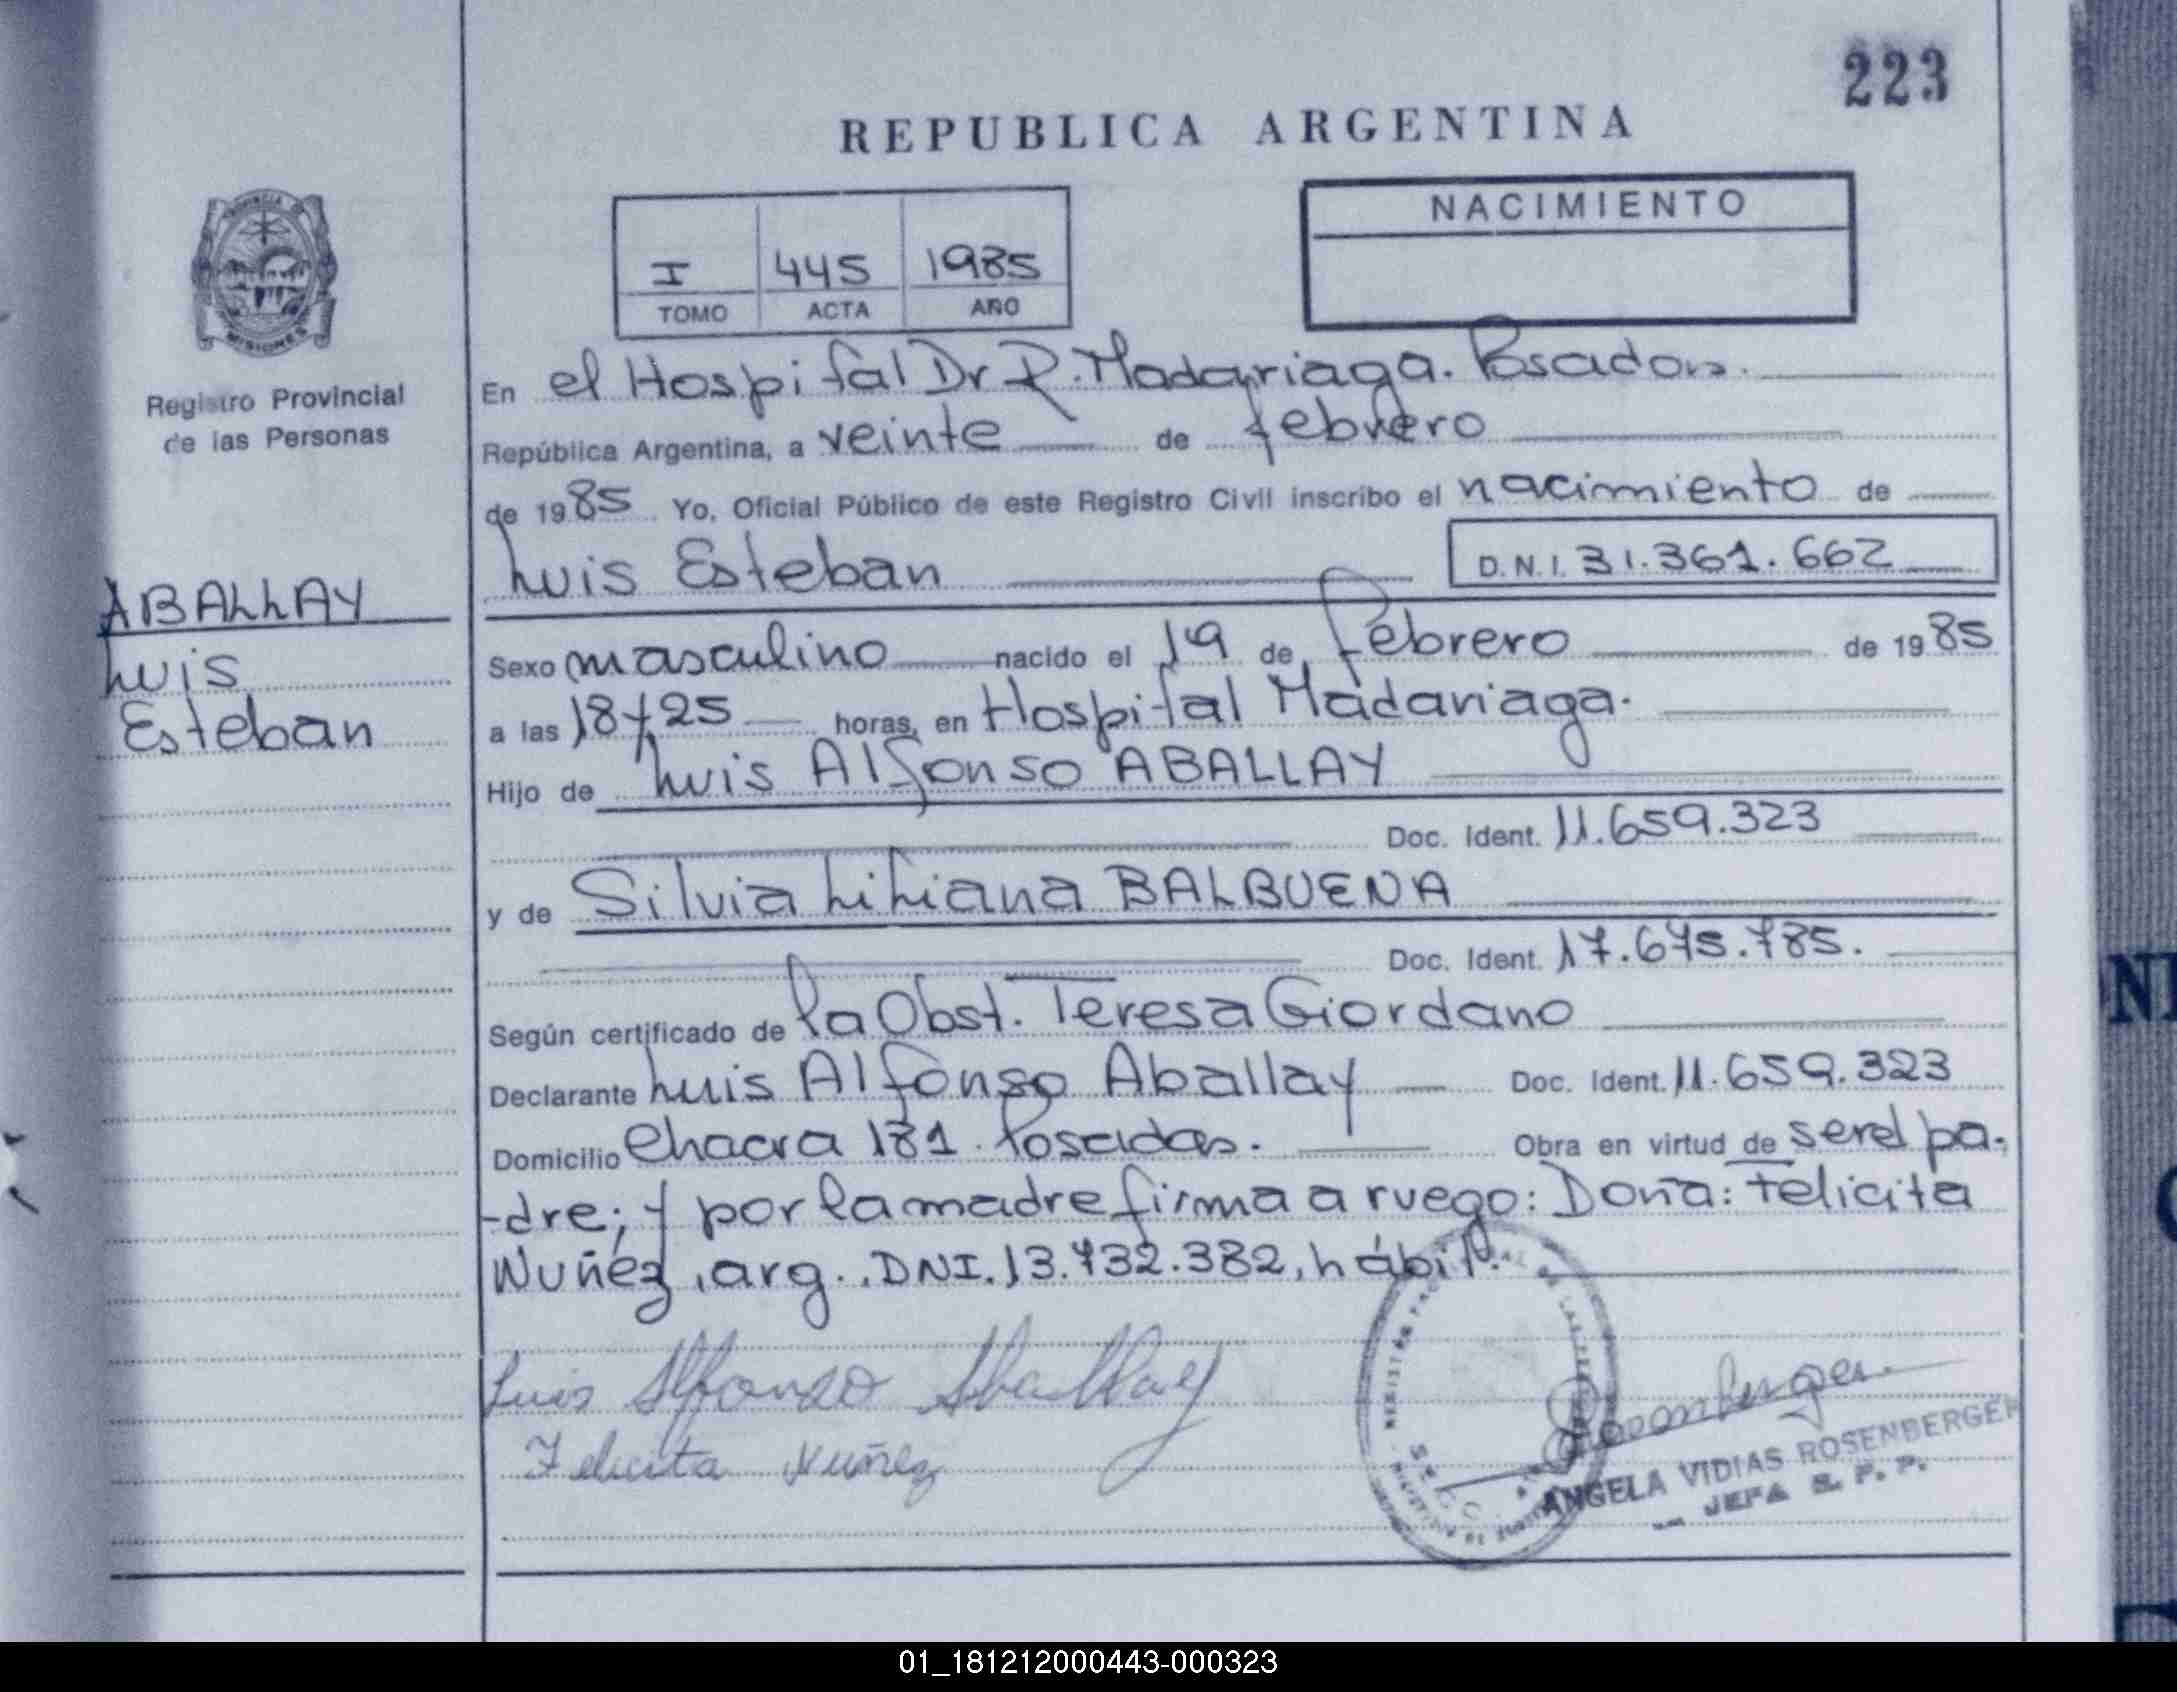 223
REPUBLICA ARGENTINA
NACIMIENTO
I 445 1985
TOMO ACTA AÑO
PROVINCIA DE
MISIONES
Registro Provincial
de las Personas
En el Hospital Dr R. Madariaga. Posadas.
República Argentina, a veinte de febrero
de 1985 Yo, Oficial Público de este Registro Civil inscribo el nacimiento de
Luis Esteban D.N.I. 31.361.662
ABALLAY
Luis
Esteban
Sexo masculino nacido el 19 de febrero de 1985
a las 18y25 horas, en Hospital Madariaga.
Hijo de Luis Alfonso ABALLAY
Doc. Ident. 11.659.323
y de Silvia Liliana BALBUENA
Doc. Ident. 17.675.785.
Según certificado de la Obst. Teresa Giordano
Declarante Luis Alfonso Aballay Doc. Ident. 11.659.323
Domicilio Chacra 181. Posadas. Obra en virtud de ser el pa-
-dre; y por la madre firma a ruego: Doña: Felicita
Nuñez, arg., DNI. 13.732.382, hábil.
Luis Alfonso Aballay
Felicita Nuñez
ANGELA VIDIAS ROSENBERGER
JEFA S. P. P.
01_181212000443-000323